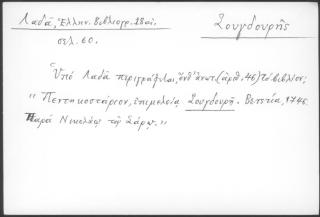 Λαδά, Ἑλλην. Βιβλιογρ. 18 αἰ.
Σουγδουρῆς
σελ. 60.
Ὑπό Λαδᾶ περιγράφεται, (ἀρθ. 46) τό βιβλίον;
"Πεντηκοστάριον, ἐπιμελείᾳ Σουγδουρῆ. Βενετία, 1746.
Παρά Νικολάῳ τῷ Σάρῳ."